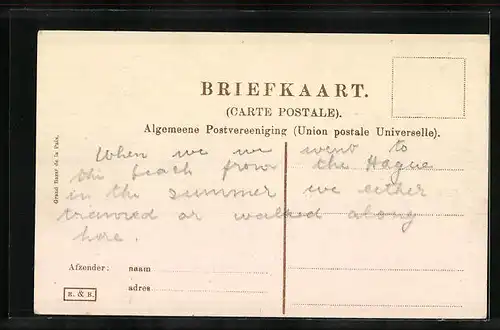 BRIEFKAART.
(CARTE POSTALE).
Algemeene Postvereeniging (Union postale Universelle).
Grand Bazar de la Paix.
When we we went to
the beach from the Hague
in the summer we either
tramred or walked along
here.
Afzender: naam
adres
B. & B.